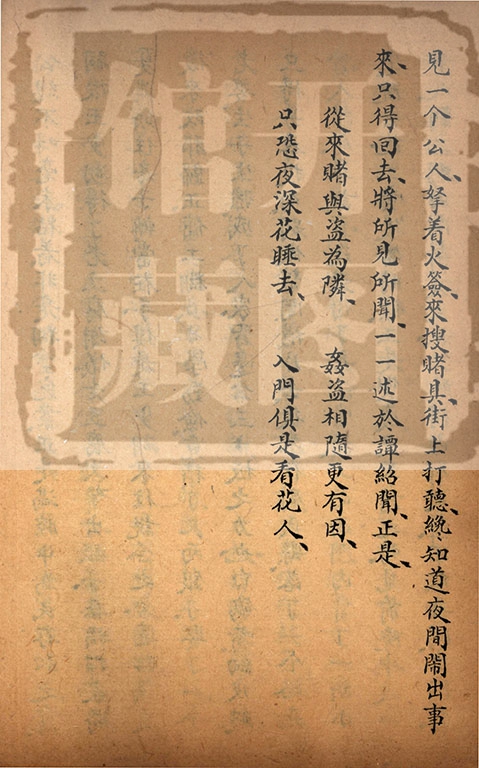 見一个公人拏着火籤、來搜賭具、街上打聽、纔知道夜間鬧出事
來、只得回去、將所見所聞、一一述於譚紹聞、正是、
從來賭與盜為隣、 姦盜相隨更有因、
只恐夜深花睡去、 入門俱是看花人、